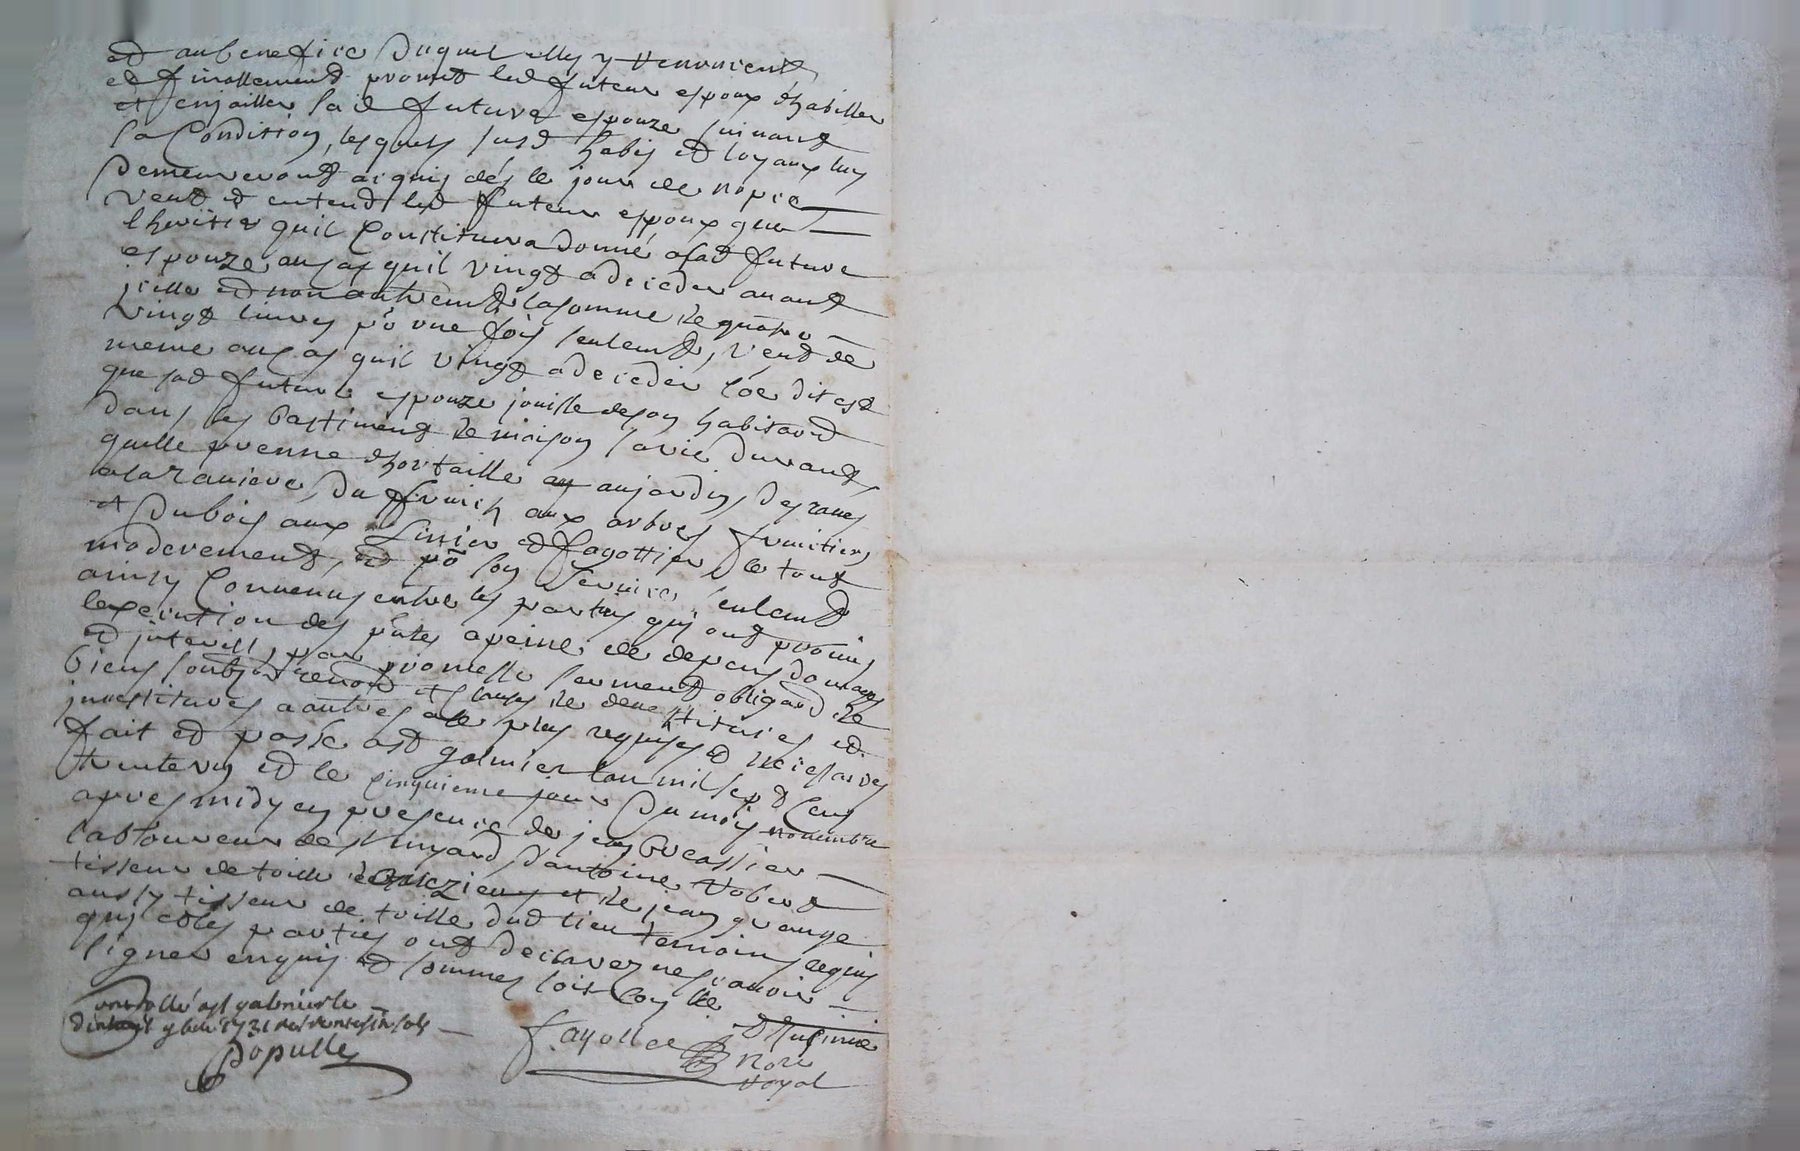 et au benefice duquel elles y renoncent
et finallement promet led futeur espoux d'habiller
et enjoailler sad future espouze suivant
sa Condition, lesquels susd habis et joyaux luy
demeureront acquis dès le jour de nopce
veut et entend led futeur espoux que
lheritier quil Constituera donne asad future
espouze, au cas quil vingt a deceder avant
jcelle et non autremt la somme de quatre
vingt livres po une fois seulemt, veut de
meme au cas quil vingt a deceder co'e dit est
que sad future espouze jouisse deson habitaon
dans les bastiments de maison savie durant
quelle prenne dhortaille au jardin, des raves
ala raviere, du fruich aux arbres fruitiers
et du bois aux et fagottier, le tout
moderement, et po son service seulemt
ainsy Convenus entre les parties qui ont promis
lexecution des p'ntes apeine de depens domages
et jnterest, par promesse serment obligaon de
biens et clauses de devestitures et
jnvestitures a autres ace plus requises et necessaires
fait et passé a st galmier lan mil sept Cens
trente un et le cinquieme jour du mois novembre
apres midy en presence de jean
labboureur de st , dantoine
tisseur de toille et de jean grange
aussy tisseur de toille dud lieu temoins requis
qui et les parties ont declarez ne scavoir
signer enquis et sommes
controllé a st galmier le
9bre 1731
Populle
fayolle
Nore
royal